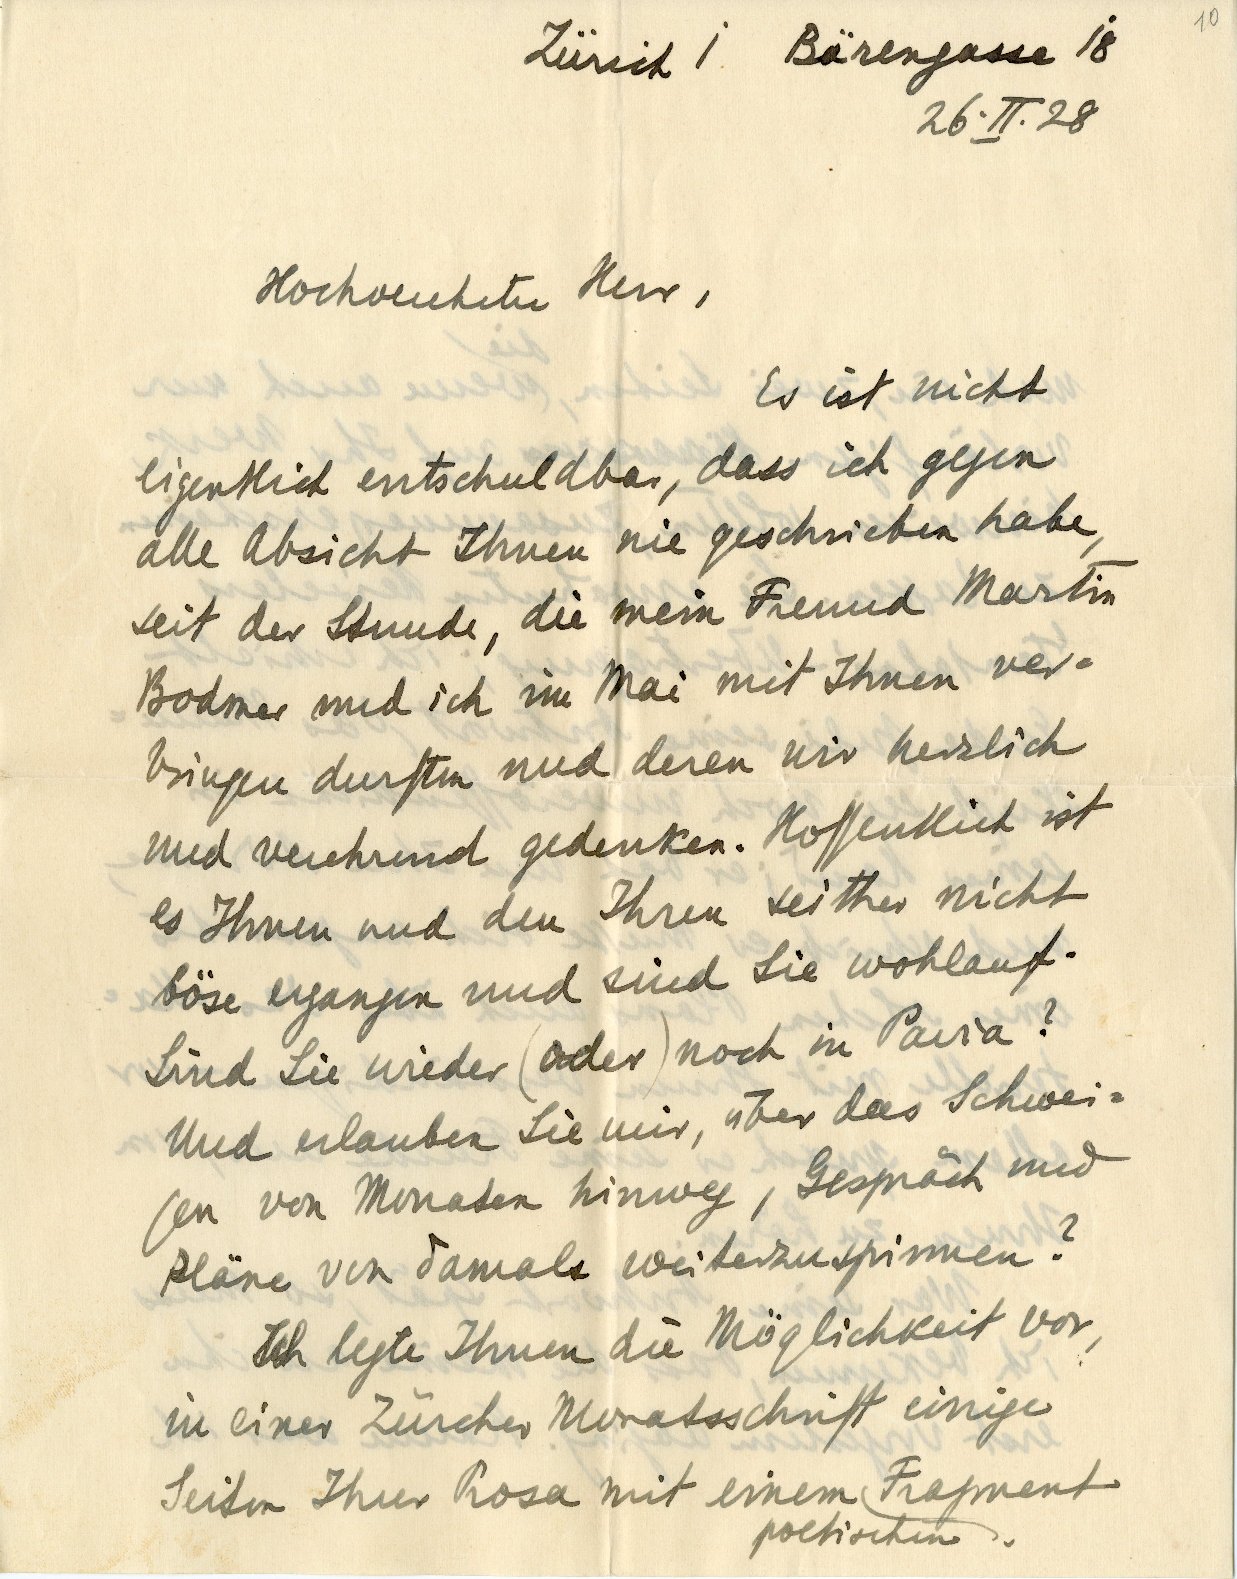 10
Zürich 1 Bärengasse 18
26.II.28
Hochverehrter Herr,
Es ist nicht
eigentlich entschuldbar, dass ich gegen
alle Absicht Ihnen nie geschrieben habe,
seit der Stunde, die mein Freund Martin
Bodmer und ich im Mai mit Ihnen ver-
bringen durften und deren wir herzlich
und verehrend gedenken. Hoffentlich ist
es Ihnen und den Ihren seither nicht
böse ergangen und sind Sie wohlauf.
Sind Sie wieder (oder) noch in Pavia?
Und erlauben Sie mir, über das Schwei-
gen von Monaten hinweg, Gespräch und
Pläne von damals weiterzuspinnen?
Ich legte Ihnen die Möglichkeit vor,
in einer Zürcher Monatsschrift einige
Seiten Ihrer Prosa mit einem Fragment
poetischen